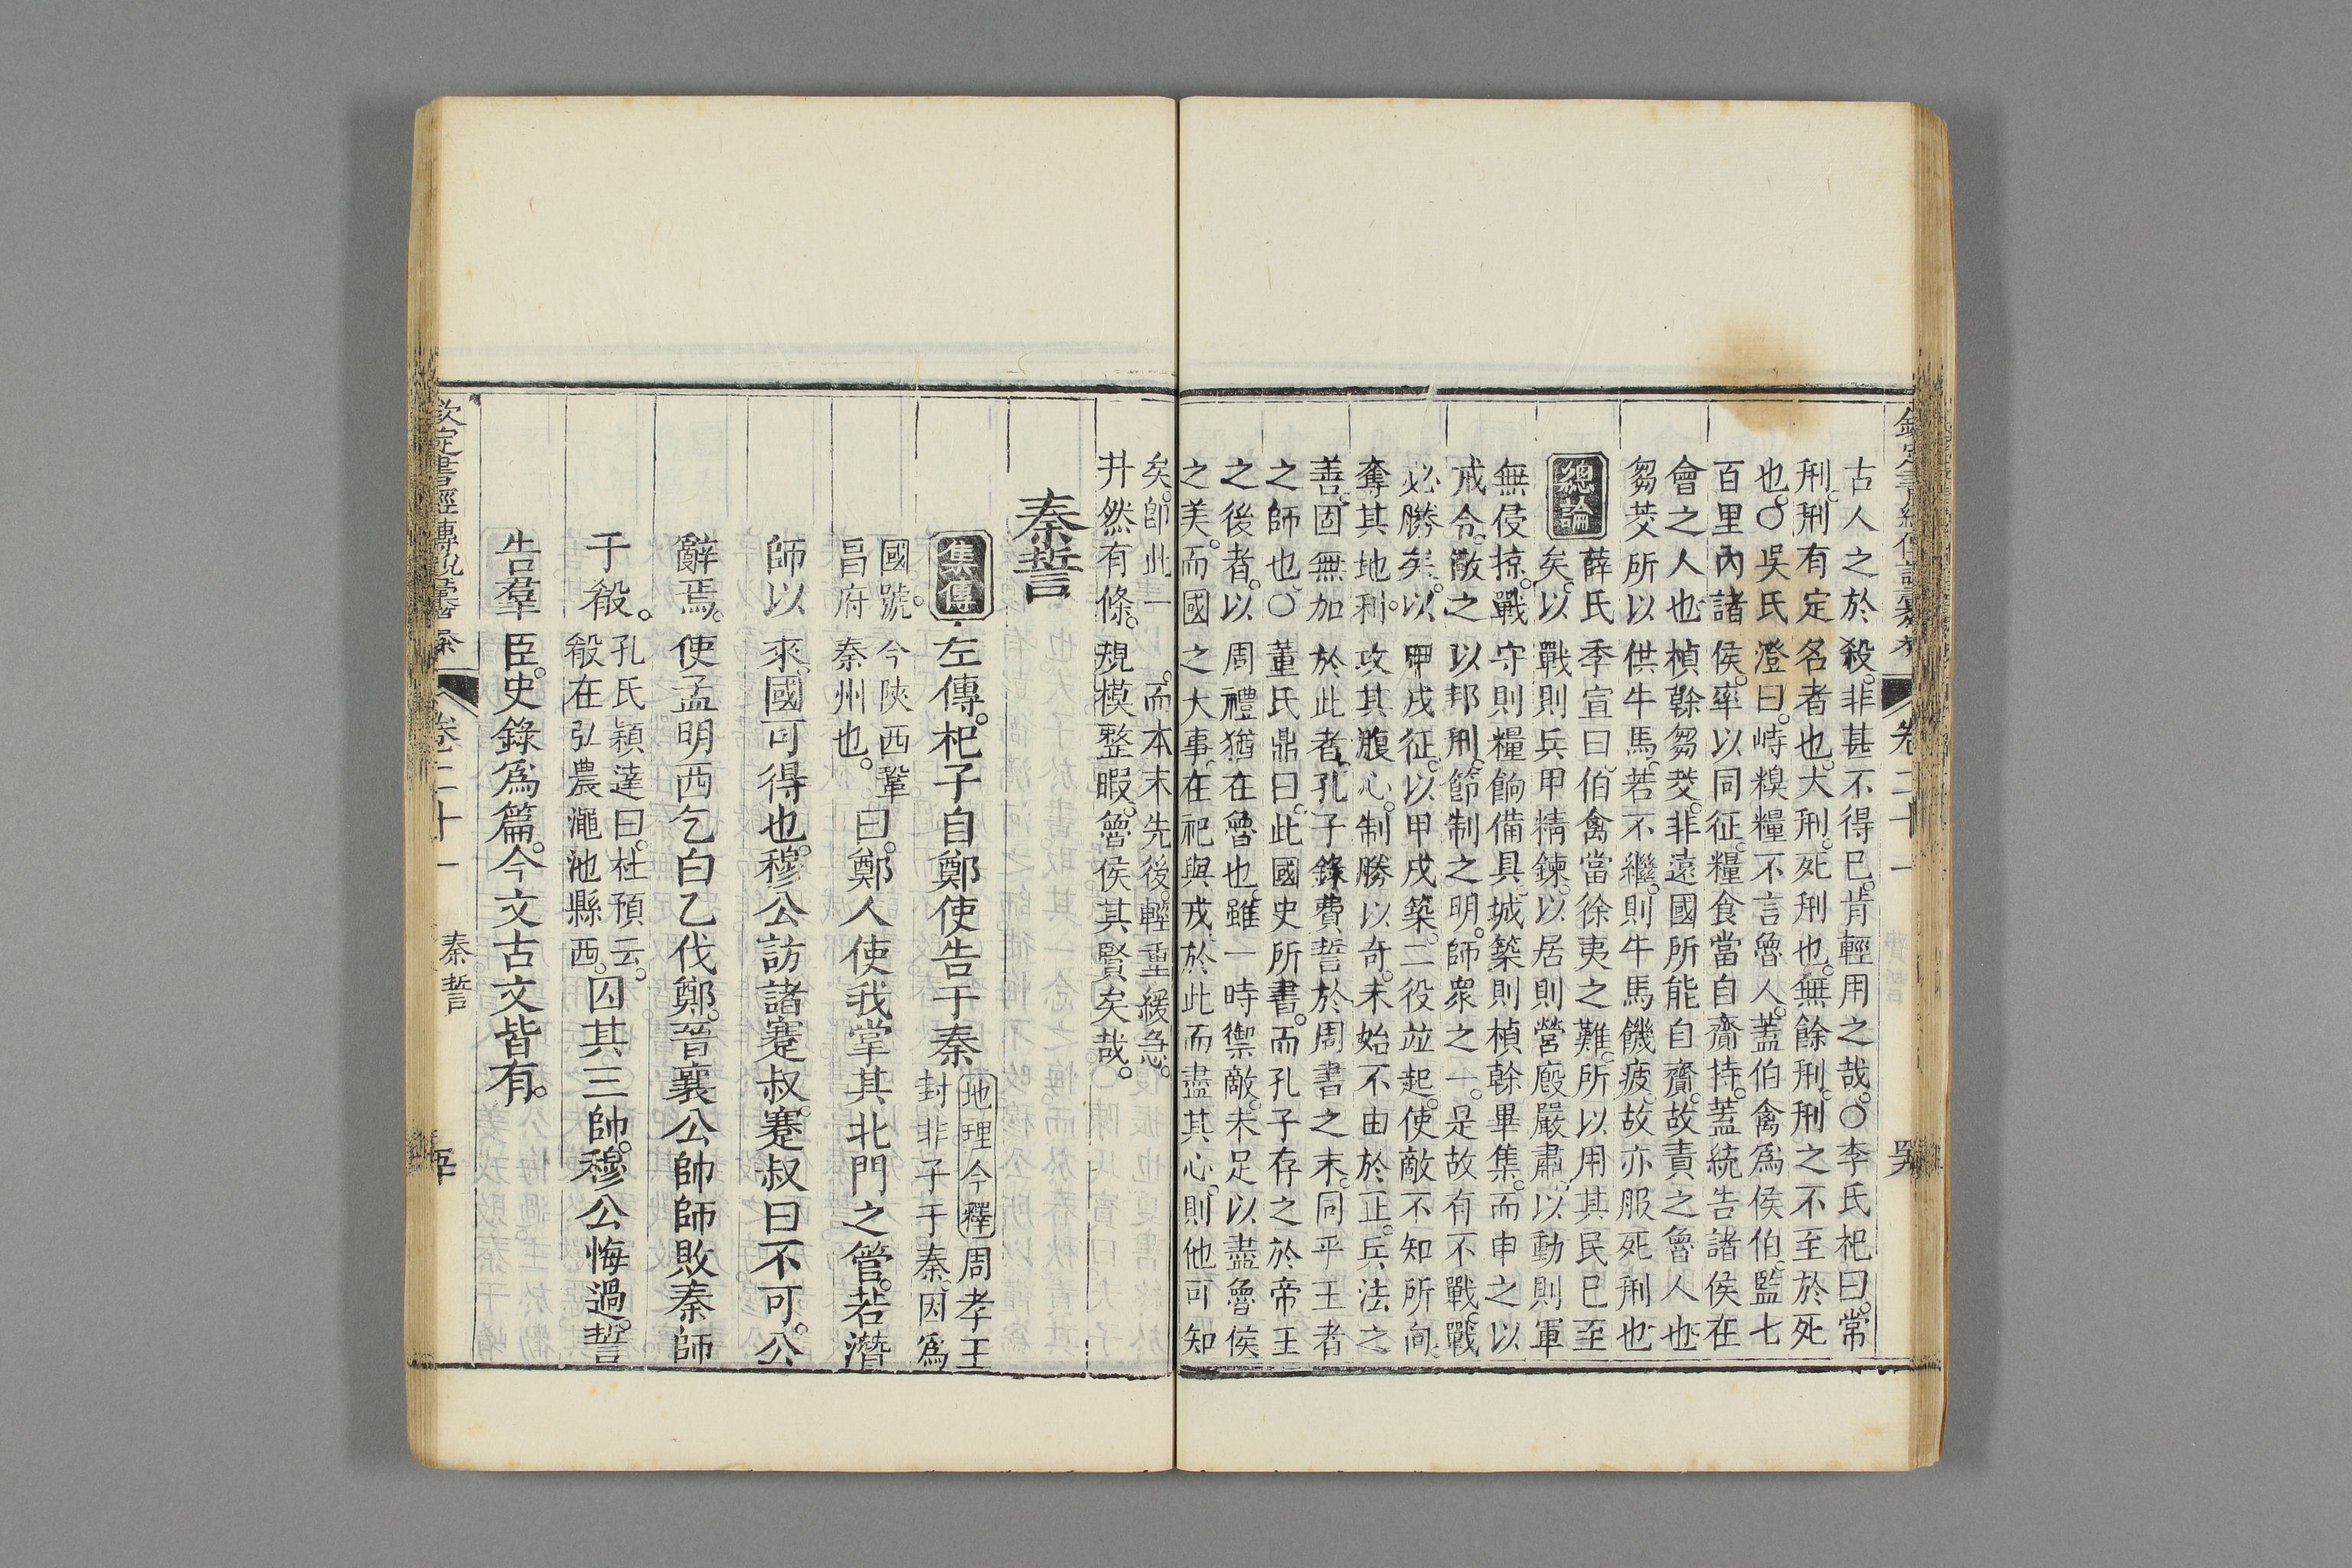 古人之於殺。非甚不得已。肯輕用之哉。○李氏杞曰。常
刑。刑有定名者也。大刑。死刑也。無餘刑。刑之不至於死
也。○吳氏澄曰。峙糗糧不言魯人。蓋伯禽爲侯伯。監七
百里內諸侯。率以同征。糧食當自齎持。蓋統告諸侯在
會之人也。楨榦芻茭。非遠國所能自齎。故責之魯人也。
芻茭所以供牛馬。若不繼。則牛馬饑疲。故亦服死刑也。
總論
薛氏季宣曰。伯禽當徐夷之難。所以用其民巳至
矣。以戰則兵甲精鍊。以居則營廏嚴肅。以動則軍
無侵掠。戰守則糧餉備具。城築則楨榦畢集。而申之以
戒令。敵之以邦刑。節制之明。師衆之一。是故有不戰。戰
必勝矣。以甲戌征。以甲戌築。二役竝起。使敵不知所向。
奪其地利。攻其腹心。制勝以奇。未始不由於正。兵法之
善。固無加於此者。孔子錄費誓於周書之末。同乎王者
之師也。○董氏鼎曰。此國史所書。而孔子存之於帝王
之後者。以周禮猶在魯也。雖一時禦敵。未足以盡魯侯
之美。而國之大事。在祀與戎。於此而盡其心。則他可知
矣。師此一。而本末先後。輕重緩急。
井然有條。規模整暇。魯侯其賢矣哉。
秦誓
集傳
左傳。杞子自鄭使告于秦
地理今釋
周孝王
封非子于秦。因爲
國號。今陝西鞏
昌府秦州也。
曰。鄭人使我掌其北門之管。若潛
師以來。國可得也。穆公訪諸蹇叔。蹇叔曰不可。公
辭焉。使孟明西乞白乙伐鄭。晉襄公帥師敗秦師
于殽。
孔氏穎達曰。杜預云。
殽在弘農澠池縣西。
囚其三帥。穆公悔過。誓
告羣臣。史錄爲篇。今文古文皆有。
欽定書經傳說彙纂
卷二十一
秦誓